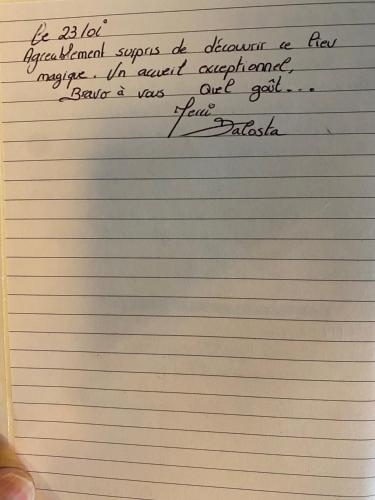 Le 23/01
Agreablement surpris de découvrir ce lieu
magique. Un accueil exceptionnel,
Bravo à vous Quel goût...
Merci
Dalosta